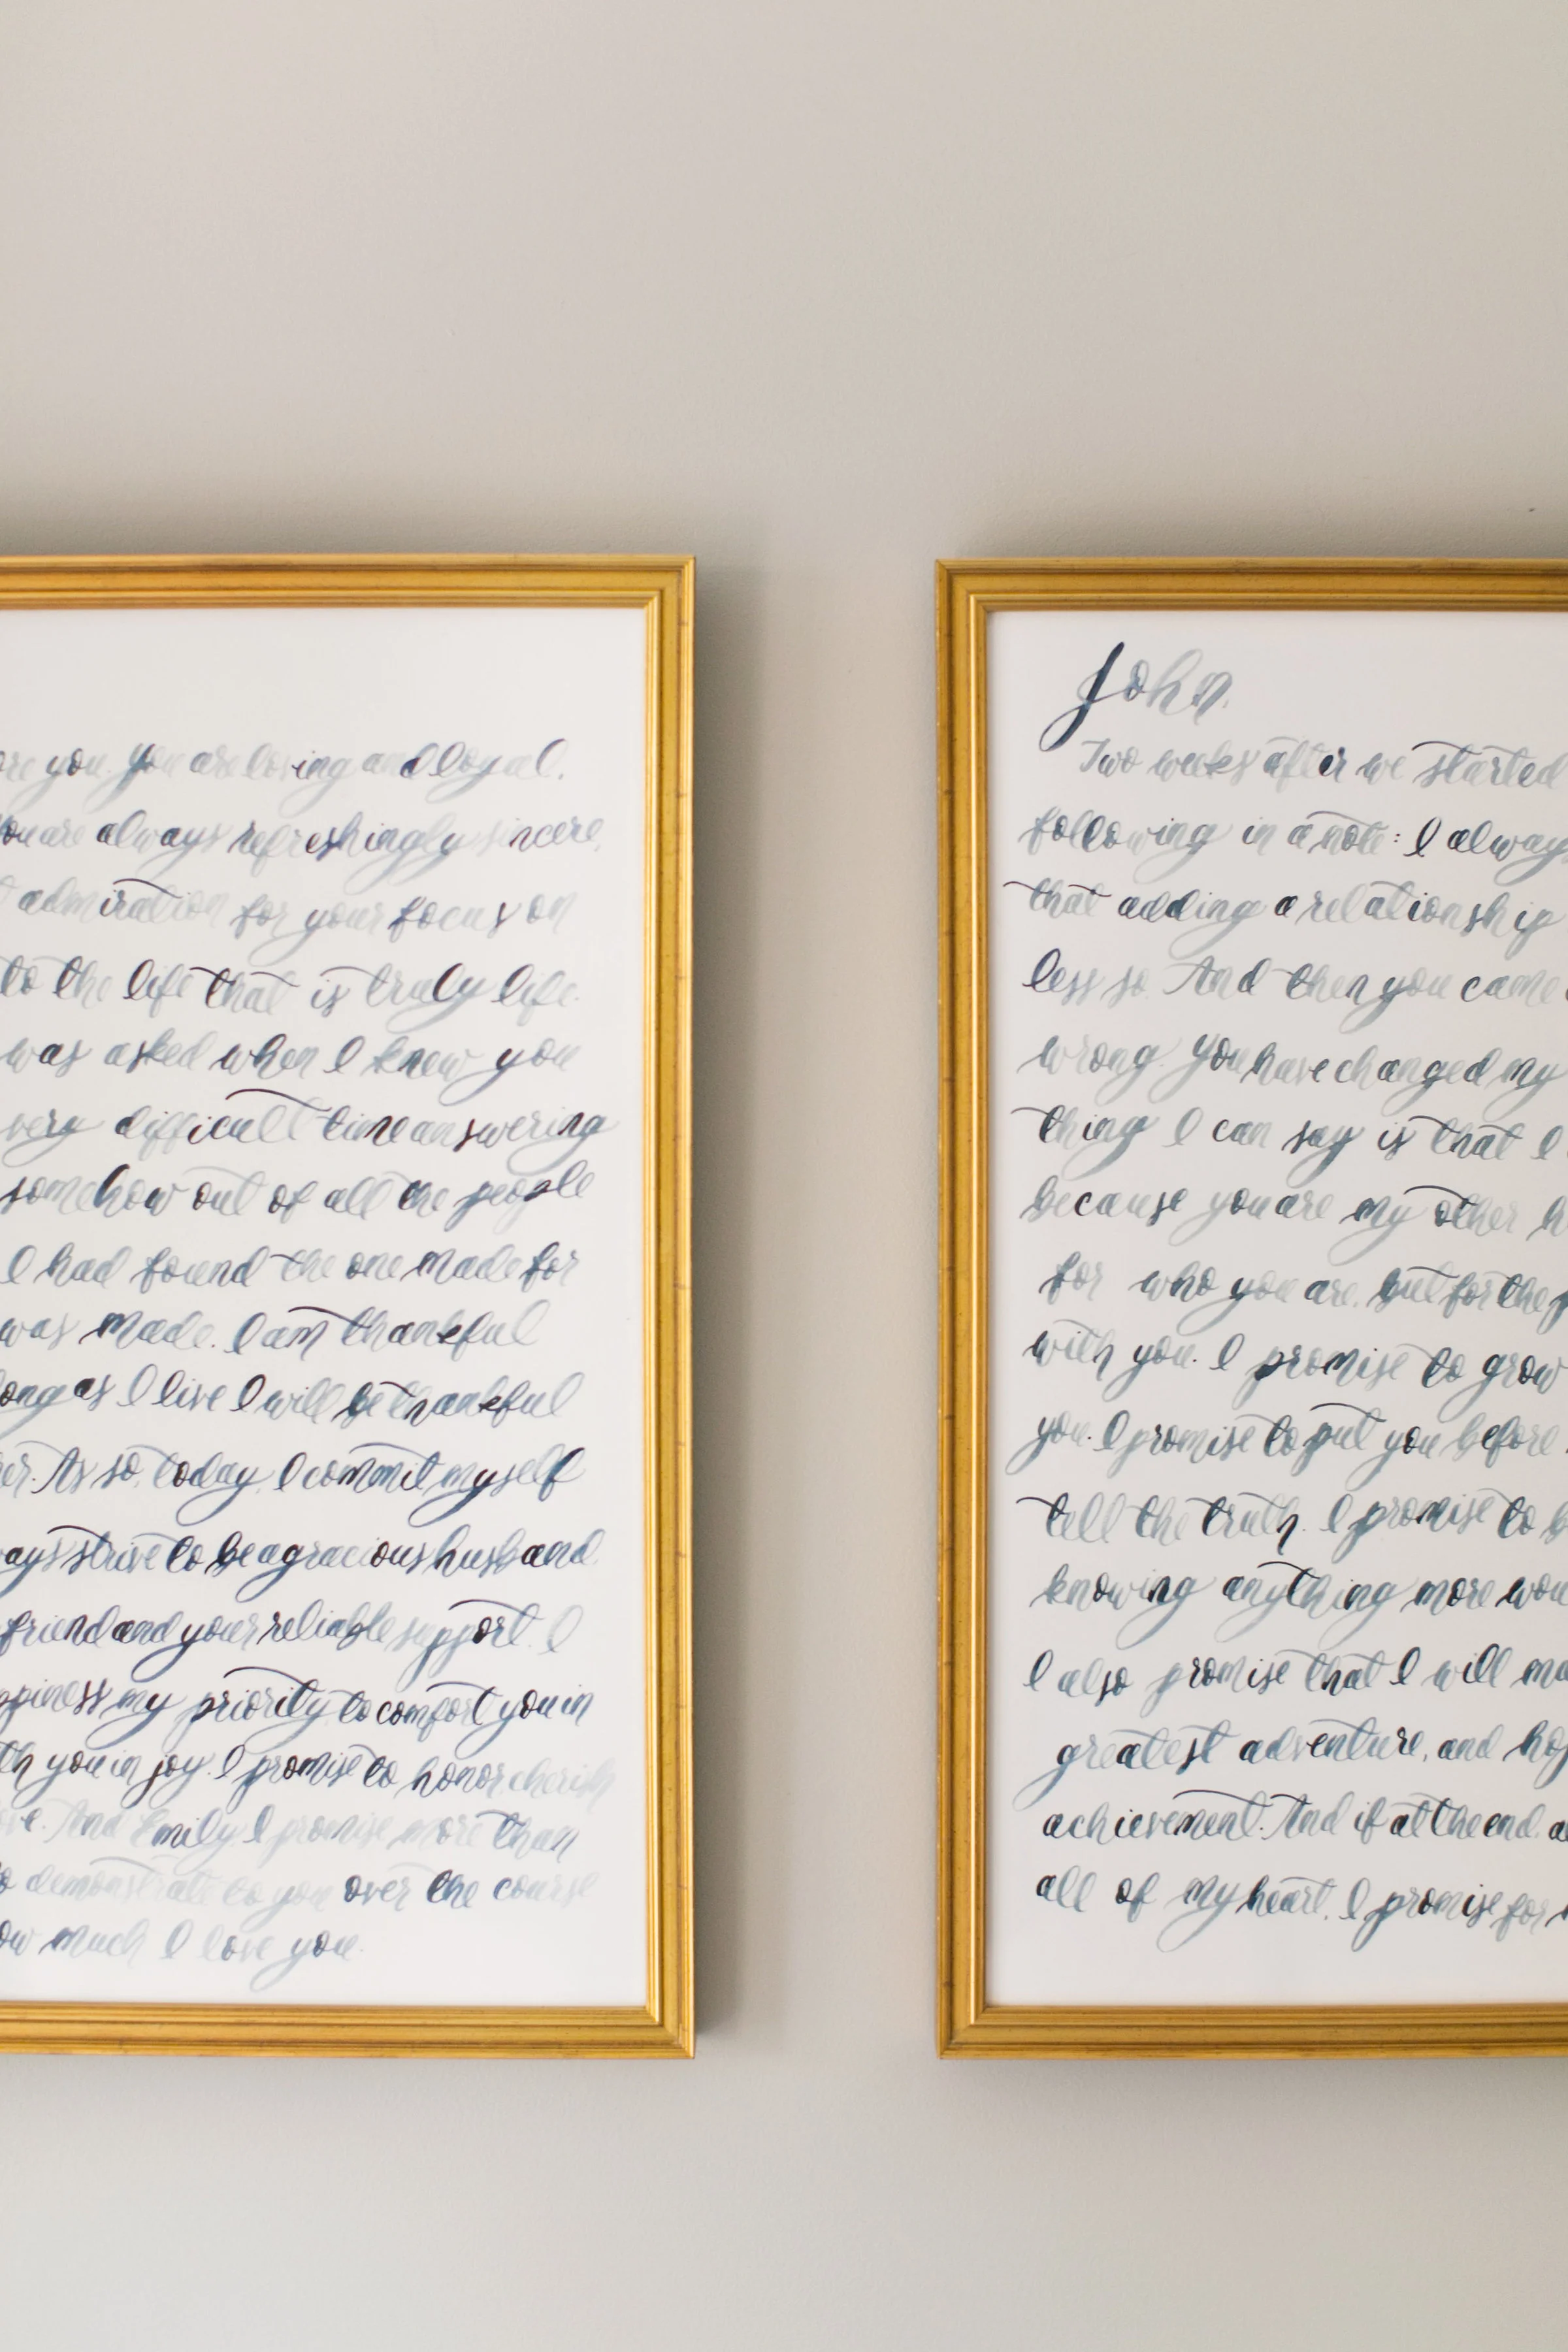 you. You are loving and loyal.
You are always refreshingly sincere,
admiration for your focus on
to the life that is truly life.
was asked when I knew you
very difficult time answering
somehow out of all the people
I had found the one made for
was made. I am thankful
long as I live I will be thankful
As so, today, I commit myself
strive to be a gracious husband,
friend and your reliable support. I
my priority, to comfort you in
you in joy. I promise to honor, cherish
And Emily, I promise more than
demonstrate to you over the course
much I love you.
John,
Two weeks after we started
following in a note: I always
that adding a relationship
less so. And then you came
wrong. You have changed my
thing I can say is that I
because you are my other
for who you are, but for the
with you. I promise to grow
you. I promise to put you before
tell the truth. I promise to
knowing anything more
I also promise that I will
greatest adventure, and
achievement. And if at the end,
all of my heart, I promise for